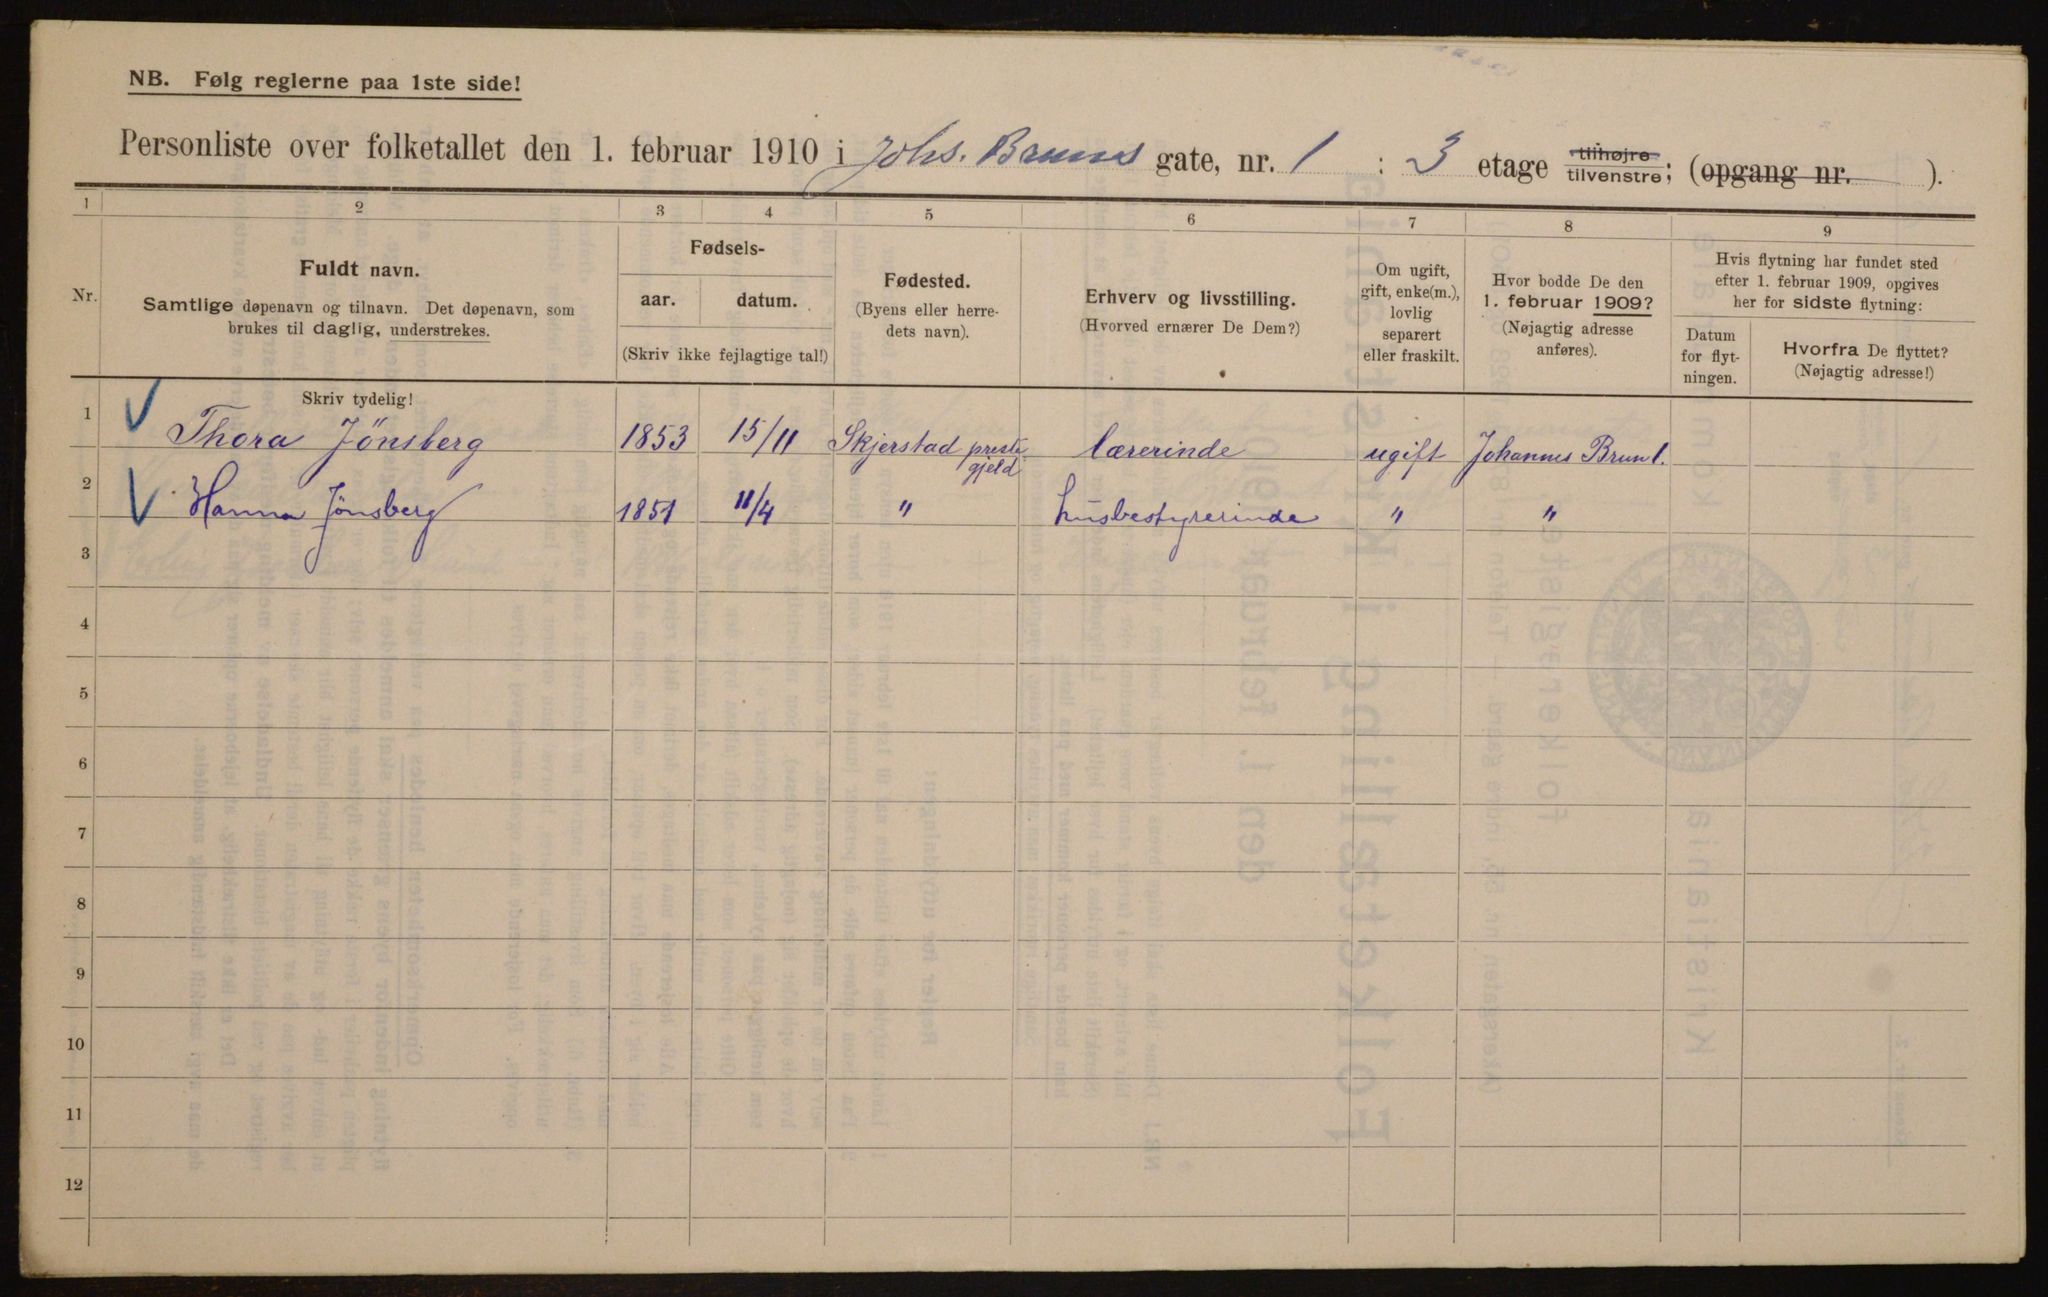 NB. Følg reglerne paa 1ste side!
Personliste over folketallet den 1. februar 1910 i Johs. Bruns gate, nr. 1 : 3 etage tilhøjre tilvenstre; (opgang nr. ).
1 2 3 4 5 6 7 8 9
Nr.
Fuldt navn.
Samtlige døpenavn og tilnavn. Det døpenavn, som
brukes til daglig, understrekes.
Fødsels-
aar. datum.
(Skriv ikke fejlagtige tal!)
Fødested.
(Byens eller herre-
dets navn).
Erhverv og livsstilling.
(Hvorved ernærer De Dem?)
Om ugift,
gift, enke(m.),
lovlig
separert
eller fraskilt.
Hvor bodde De den
1. februar 1909?
(Nøjagtig adresse
anføres).
Hvis flytning har fundet sted
efter 1. februar 1909, opgives
her for sidste flytning:
Datum
for flyt-
ningen.
Hvorfra De flyttet?
(Nøjagtig adresse!)
Skriv tydelig!
1 Thora Jönsberg 1853 15/11 Skjerstad preste gjeld lærerinde ugift Johannes Brun 1.
2 Hanna Jönsberg 1851 11/4 " husbestyrerinde " "
3
4
5
6
7
8
9
10
11
12